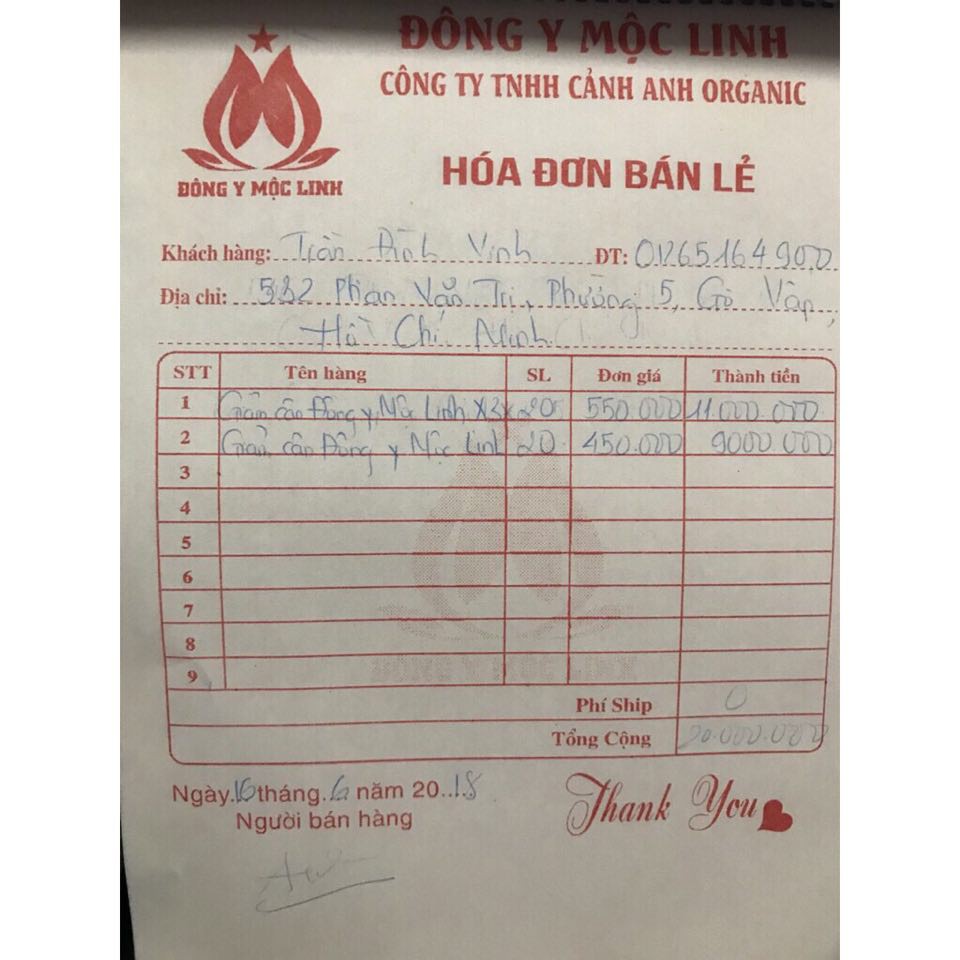 ĐÔNG Y MỘC LINH
CÔNG TY TNHH CẢNH ANH ORGANIC
ĐÔNG Y MỘC LINH
HÓA ĐƠN BÁN LẺ
Khách hàng: Trần Đình Vinh ĐT: 01265164900
Địa chỉ: 532 Phan Văn Trị, Phường 5, Gò Vấp,
Hồ Chí Minh
STT Tên hàng SL Đơn giá Thành tiền
1 Giảm cân Đông y Mộc Linh X3 x 20 550.000 11.000.000
2 Giảm cân Đông y Mộc Linh 20 450.000 9000.000
3
4
5
6
7
8
9
ĐÔNG Y MỘC LINH
Phí Ship 0
Tổng Cộng 20.000.000
Ngày 16 tháng 6 năm 2018
Người bán hàng
Thank You